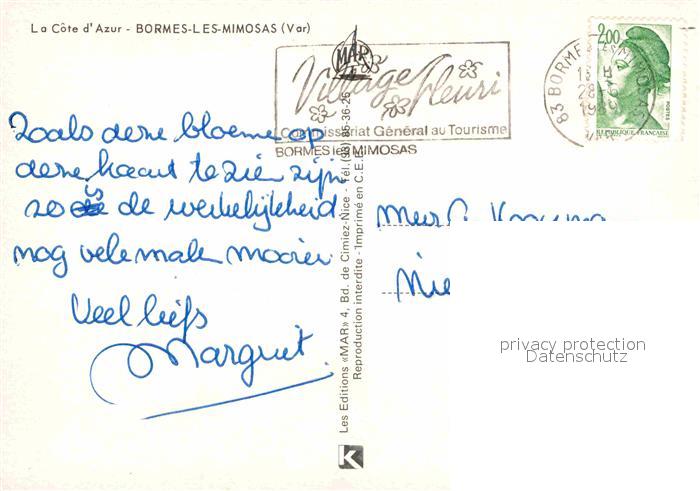 La Côte d'Azur - BORMES-LES-MIMOSAS (Var)
MAR
Village fleuri
Commissariat Général au Tourisme
BORMES les MIMOSAS
83 BORMES LES MIMOSAS
2,00
POSTES
REPUBLIQUE FRANÇAISE
Zoals deze bloemen op
deze kaart te zien zijn
zo is de werkelijkheid
nog vele malen mooier
Veel liefs
Margriet.
Mevr.
Les Editions «MAR» 4, Bd. de Cimiez-Nice - Tél.(93)
Reproduction interdite - Imprimé en C.E.E.
K
privacy protection
Datenschutz